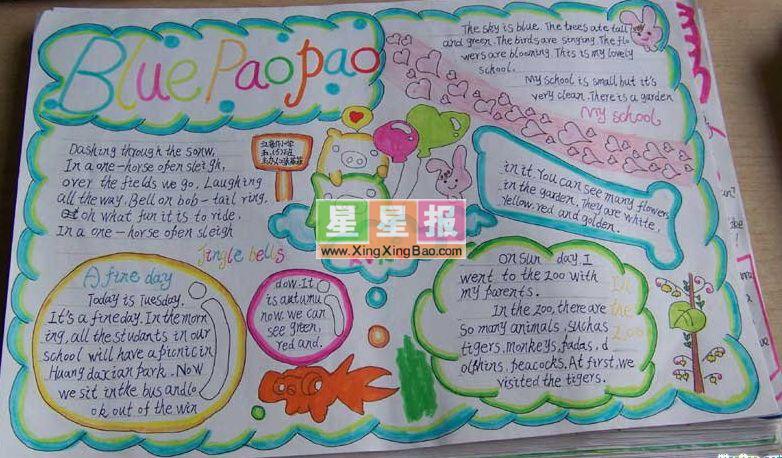 Blue Paopao
The sky is blue. The trees are tall
and green. The birds are singing. The flo
wers are blooming. This is my lovely
school.
My school is small but it's
very clean. There is a garden
My school
in it. You can see many flowers
in the garden. They are white,
Yellow, red and golden.
Dashing through the sonw,
In a one-horse ofen sleigh,
over the fields we go, Laughing
all the way. Bell on bob-tail ring,
oh what fun it is to ride,
In a one-horse ofen sleigh
Jingle bells
星星报
www.XingXingBao.com
A fine day
Today is Tuesday.
It's a fine day. In the morn
ing, all the students in our
school will have a picnic in
Huang daxian park. Now
we sit in the bus and lo
ok out of the win
dow. It
is autumu
now. we can
see green,
red and.
On sun day I
went to the zoo with
my parents.
In the zoo, there are
so many animals, suchas
tigers, monkeys, padas, d
olthins, peacocks. At first, we
visited the tigers.
In
the
Zoo